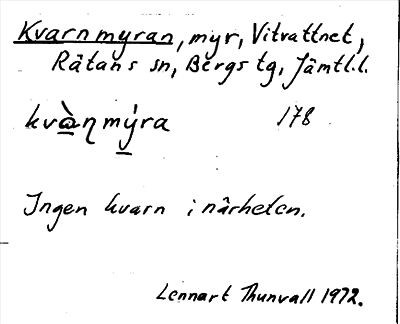 Kvarnmyran, myr, Vitvattnet,
Rätans sn, Bergs tg, Jämtl.l.
kvàɳmýra 178
Ingen kvarn i närheten.
Lennart Thunvall 1972.